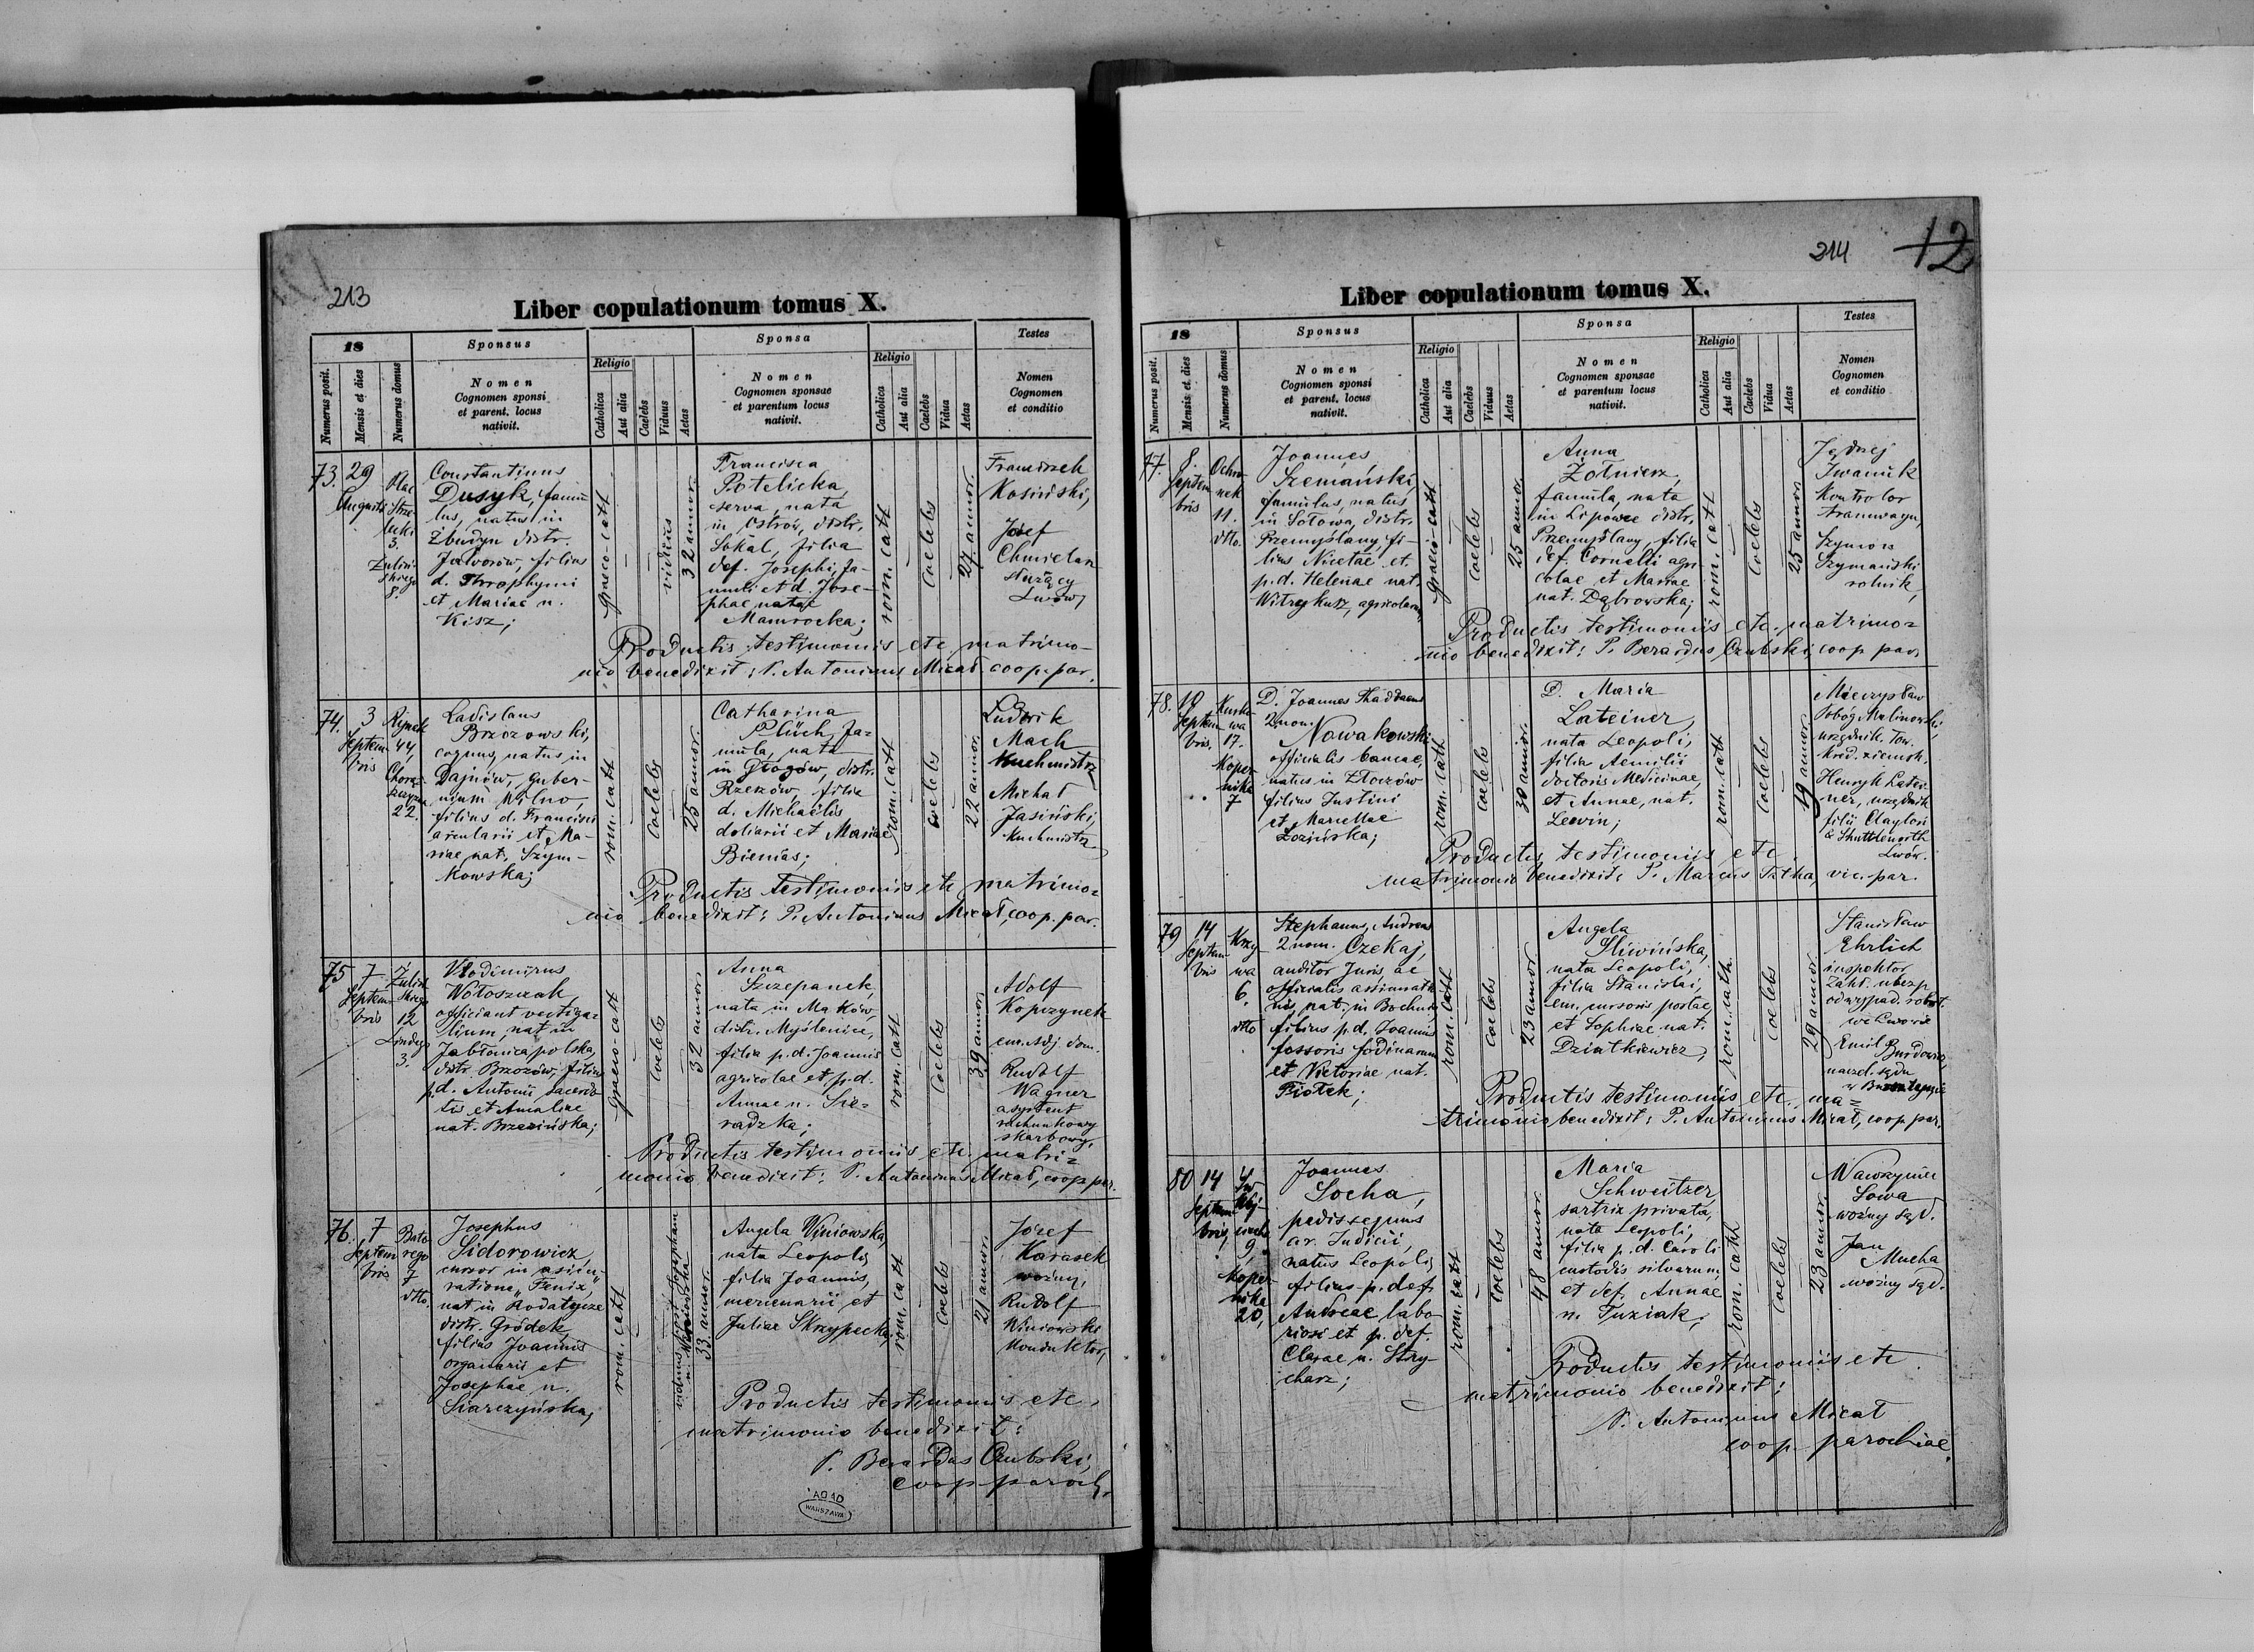 213
Liber copulationum tomus X.
18
Sponsus
Sponsa
Testes
Numerus posit.
Mensis et dies
Numerus domus
Nomen
Cognomen sponsi
et parent. locus
nativit.
Religio
Catholica
Aut alia
Caelebs
Viduus
Aetas
Nomen
Cognomen sponsae
et parentum locus
nativit.
Religio
Catholica
Aut alia
Caelebs
Vidua
Aetas
Nomen
Cognomen
et conditio
73.
29
Augusti
Plac
Strze-
lecki
3.
Zuliń-
skiego
8.
Constantinus
Dusyk, famu-
lus, natus in
Zbudyn distr.
Jaworów, filius
d. Throphymi
et Mariae n.
Kisz;
graeco-catt
viduus
32 annor.
Francisca
Potelicka
serva, nata
in Ostrów, distr.
Sokal, filia
def. Josephi, fa-
muli et d. Jose-
phae natae
Mamrocka;
rom. catt
Caelebs
27 annor.
Franciszek
Kosiński,
Józef
Chmielarz
służący
Lwów,
Productis testimoniis etc matrimo-
nio benedixit: P. Antoninus Micał coop. par.
74.
3
Septem-
bris
Rynek
44,
Chorąż-
czyzna
22.
Ladislaus
Brzozowski,
coquus, natus in
Dajnów, guber-
nium Wilno,
filius d. Francisci
arcularii et Ma-
riae nat. Szym-
kowska;
rom. catt
Caelebs
25 annor.
Catharina
Plüch, fa-
mula, nata
in Głogów, distr.
Rzeszów, filia
d. Michaelis
doliarii et Maria
Bienias;
rom. catt
Caelebs
22 annor.
Ludwik
Mach
Kuchmistrz
Michał
Jasiński,
Kuchmistrz
Productis testimoniis etc matrimo=
nio benedixit: P. Antoninus Micał, coop. par.
75
7
Septem-
bris
Żuliń-
skiego
12
Lindego
3.
Vlodimirus
Wołoszczak
officiant vectiga-
lium, nat in
Jabłonica polska,
distr. Brzozów, filius
p. d. Antonii sacerdo-
tis et Amaliae
nat. Brzezińska;
graeco-catt
Caelebs
32 annor.
Anna
Szczepanek,
nata in Maków,
distr. Myślenice,
filia p. d. Joannis
agricolae et p. d.
Annae n. Sie-
radzka;
rom. cath
Caelebs
39 annor.
Adolf
Kopczynek
em. adj. dom.
Rudolf
Wagner
asystent
rachunkowy
skarbowy,
Productis testimoniis etc. matri=
monio benedixit: P. Antoninus Micał, coop. par.
76.
7
Septem
bris
Bato-
rego
7
dtto.
Josephus
Sidorowicz
cursor in assicu-
ratione "Fenix,
nat in Rodatycze
distr. Gródek,
filius Joannis
organarii et
Josephae n.
Siarczyńska,
rom. catt
33 annor.
Angela Winiowska,
nata Leopoli,
filia Joannis,
mercenarii et
Juliae Skrzypecka,
rom. catt
Caelebs
21 annor.
Józef
Karasek
woźny,
Rudolf
Winiowski
Konduktor,
Productis testimoniis etc,
matrimonio benedixit:
P. Berardus Czubski;
coop paroch.
AGAD
WARSZAWA
214
12
Liber copulationum tomus X.
18
Sponsus
Sponsa
Testes
Numerus posit.
Mensis et dies
Numerus domus
Nomen
Cognomen sponsi
et parent. locus
nativit.
Religio
Catholica
Aut alia
Caelebs
Viduus
Aetas
Nomen
Cognomen sponsae
et parentum locus
nativit.
Religio
Catholica
Aut alia
Caelebs
Vidua
Aetas
Nomen
Cognomen
et conditio
77.
8.
Septem
bris
Ochro-
nek
11.
dtto.
Joannes
Szemański
famulus, natus
in Sołowa, distr.
Przemyślany, fi-
lius Nicetae et
p. d. Helenae nat.
Witrykusz, agricolarum,
graeco-catt
Caelebs
25 annor.
Anna
Żołnierz,
famula, nata
in Lipowce distr.
Przemyślany, filia
def. Cornelli agri
colae et Mariae
nat. Dąbrowska;
rom. catt
Caelebs
25 annor.
Jędrzej
Iwanik
Kontrolor
tramwayu,
Szymon
Szymański
rolnik,
Productis testimoniis etc. matrimo=
nio benedixit: P. Berardus Czubski, coop par.
78.
10
Septem
bris,
Kurko-
wa
17.
Koper-
nika
7
D. Joannes Thaddaeus
2 nom. Nowakowski
officialis bancae,
natus in Złoczów
filius Justini
et Marcellae
Łozińska;
rom. cath
Caelebs
30 annor.
D. Maria
Lateiner,
nata Leopoli,
filia Aemilii
doctoris Medicinae,
et Annae, nat.
Lewin;
rom. cath
Caelebs
19 annor.
Mieczysław
Sobóg Malinowski,
urzędnik. Tow.
kred. ziemsk.
Henryk Latei-
ner, urzędnik
filii Clayton
& Shuttleworth
Lwów.
Productis testimoniis etc.
matrimonio benedixit: P. Marcus vic. par.
79
14
Septem
bris
Krzy-
wa
6.
dtto
Stephanus, Andreas
2 nom. Czekaj,
auditor Juris, ac
officialis
nat. in Bochnia,
filius p. d. Joannis
fossoris fodinarum
et Victoriae nat.
Fiołek;
rom. catt
Caelebs
23 annor.
Angela
Śliwińska,
nata Leopoli,
filia Stanislai,
em. cursoris postae,
et Sophiae nat.
Dziatkiewicz,
rom. cath.
Caelebs
29 annor.
Stanisław
Ehrlich
inspektor
Zakł. ubezp.
od wypad. robot.
we Lwowie
Emil Burdowicz,
naczel. sądu
Productis testimoniis etc., ma=
trimonio benedixit: P. Antoninus Micał, coop. par.
80
14
Septem
bris,
9.
Koper-
nika
20,
Joannes
Socha,
pedissequus
ar. Judicii,
natus Leopoli,
filius p. def.
Andreae labo-
riosi et p. def.
Clarae n. Stry-
charz;
rom. catt
Caelebs
48 annor.
Maria
Schweitzer,
sartrix privata,
nata Leopoli,
filia p. d. Caroli
custodis silvarum,
et def. Annae
n. Tuziak;
rom. cath
Caelebs
23 annor.
Wawrzyniec
Sowa
woźny sąd.
Jan
Mucha
woźny sąd.
Productis testimoniis etc
matrimonio benedixit:
P. Antoninus Micał
coop. parochiae.